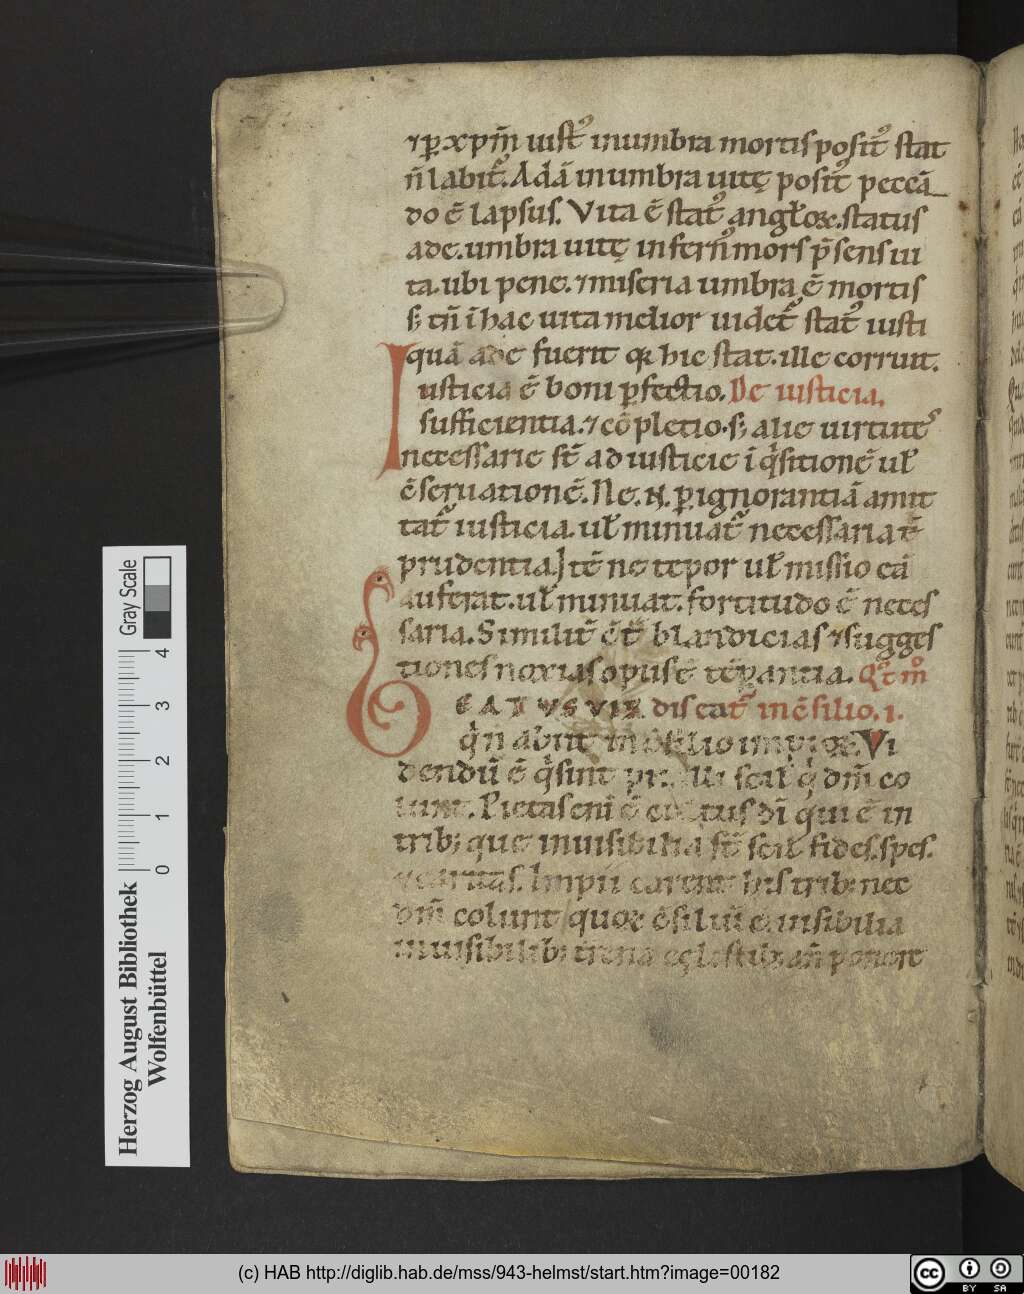 ⁊ ꝑ xp̄m iustꝰ in umbra mortis positꝰ stat
n̄ labit᷑. Adā in umbra uitę positꝰ peccā
do ē lapsus. Vita ē statꝰ angl̄oꝝ. status
ade. umbra uitę infernꝰ mors p̄sens ui
ta. ubi pene. ⁊ miseria umbra ē mortis
s; tn̄ ī hac uita melior uidet᷑ statꝰ iusti
quā ade fuerit qꝛ hic stat. ille corruit.
Iusticia ē boni ꝑfectio. De iusticia.
sufficientia. ⁊ cōpletio. s; alie uirtuteˢ
necessarie st̄ ad iusticie īq̇sitionē ul̄
ↄ̄seruationē. Ne .n. ꝑ ignorantiā amit
tat᷑ iusticia. ul̄ minuat᷑ necessaria ē
prudentia. Itē ne tepor ul̄ missio eā
auferat. ul̄ minuat. fortitudo ē neces
saria. Similit᷑ ↄ̄t̄ blandicias ⁊ sugges
tiones noxias opus ē tēꝑantia. Qͦt mͦ
BEATUS VIR discat᷑ in ↄ̄silio. i.
q̇ n̄ abiit in ↄ̄silio impioꝝ. Vi
dendū ē q̇ sint scil̄ q̇ dm̄ co
lunt. Pietas enī ē cultus dī qui ē in
trib; que inuisibilia st̄ scil̄ fides. spes.
⁊ caritas. Impii carent his trib; nec
dm̄ colunt quoꝝ ↄ̄siliū ē. uisibilia
inuisibilib; terrena cęlestib; an̄ponere
Herzog August Bibliothek
Wolfenbüttel
0 1 2 3 4
Gray Scale
(c) HAB http://diglib.hab.de/mss/943-helmst/start.htm?image=00182
cc BY SA